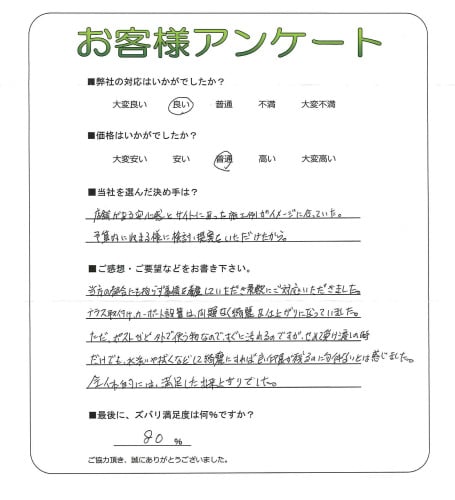 お客様アンケート
■弊社の対応はいかがでしたか？
大変良い 良い 普通 不満 大変不満
■価格はいかがでしたか？
大変安い 安い 普通 高い 大変高い
■当社を選んだ決め手は？
店舗がある安心感とサイトにあった施工例がイメージに合っていた。
予算内に収まる様に検討、提案をいただけたから。
■ご感想・ご要望などをお書き下さい。
当方の都合にも拘らず事情を考慮していただき柔軟にご対応いただきました。
テラス取付け、カーポート設置は、問題なく綺麗な仕上がりになっていました。
ただ、ポストなど外で使う物なので、すぐに汚れるのですが、せめて受け渡しの時
だけでも、水洗いや拭くなどして綺麗にすれば良い印象が残るのに勿体ないとは感じました。
全体的には、満足した出来上がりでした。
■最後に、ズバリ満足度は何%ですか？
80 %
ご協力頂き、誠にありがとうございました。